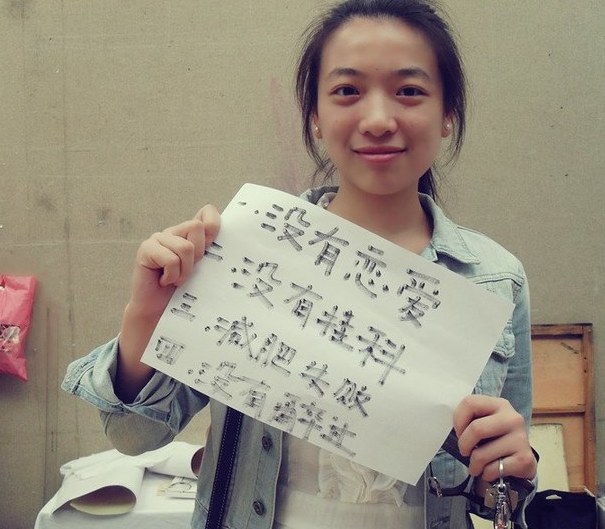 一.没有恋爱
二.没有挂科
三.减肥失败
四.没有醉过